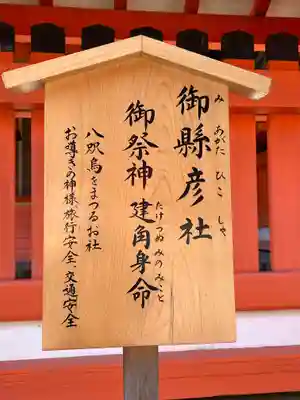 御縣彦社
み あがた ひこ しゃ
御祭神 建角身命
たけつぬ みの みこと
八咫烏をまつるお社
お導きの神様旅行安全、交通安全